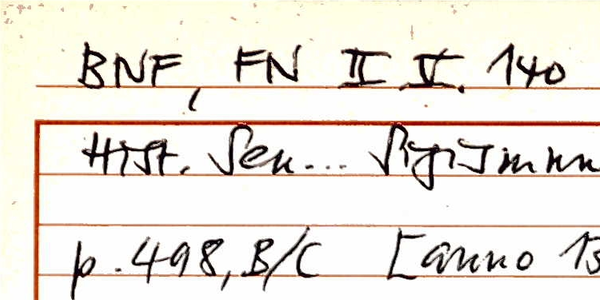 BNF, FN II V. 140
Hist. Sen...
p. 498, B/C [anno 13